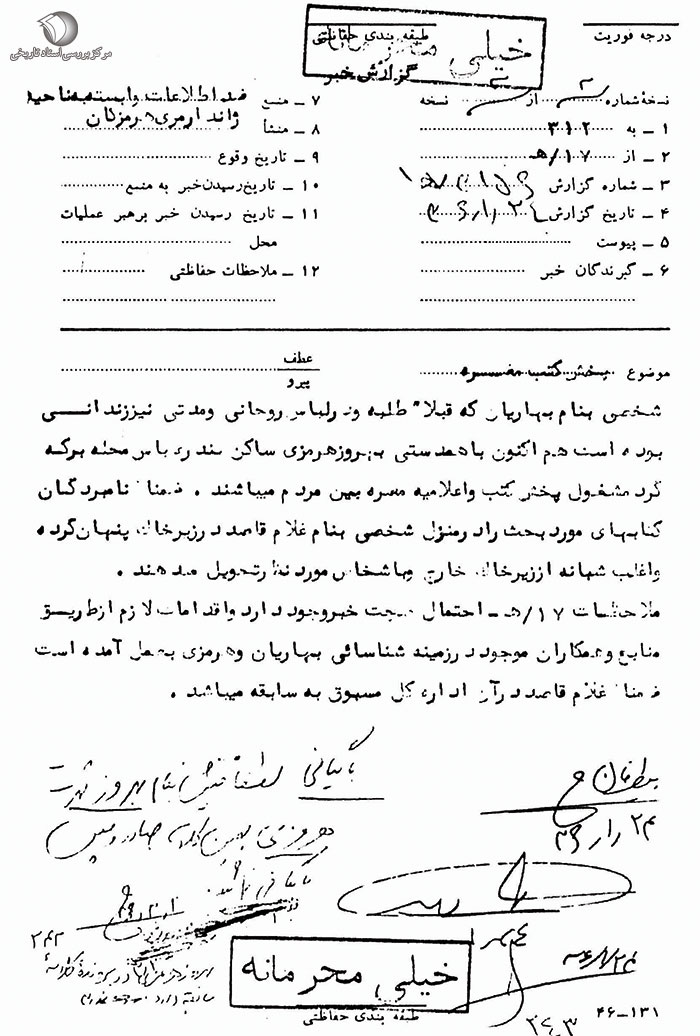 مرکز بررسی اسناد تاریخی
درجه فوریت
طبقه بندی حفاظتی
خیلی محرمانه
گزارش خبر
نسخهٔ شماره ۲ از ۳ نسخه
۱ ـ به ۳۱۲
۲ ـ از ۱۷/هـ
۳ ـ شماره گزارش
۴ ـ تاریخ گزارش
۵ ـ پیوست
۶ ـ گیرندگان خبر
۷ ـ منبع ضد اطلاعات وابسته به ناحیه
ژاندارمری هرمزگان
۸ ـ منشأ
۹ ـ تاریخ وقوع
۱۰ ـ تاریخ رسیدن خبر به منبع
۱۱ ـ تاریخ رسیدن خبر برهبر عملیات
محل
۱۲ ـ ملاحظات حفاظتی
موضوع پخش کتب مضره
عطف
پیرو
شخصی بنام بهاریان که قبلا" طلبه و در لباس روحانی و مدتی نیز زندانی
بوده است هم اکنون با همدستی بهروز هرمزی ساکن بندرعباس محله برکه
گرد مشغول پخش کتب و اعلامیه مضره بین مردم میباشند . ضمنا" نامبردگان
کتابهای مورد بحث را در منزل شخصی بنام غلام قاصد در زیر خاک پنهان کرده
و اغلب شبانه از زیر خاک خارج و به اشخاص مورد نظر تحویل میدهند .
ملاحظات ۱۷/هـ ـ احتمال صحت خبر وجود دارد و اقدامات لازم از طریق
منابع و همکاران موجود در زمینه شناسائی بهاریان و هرمزی بعمل آمده است
ضمنا" غلام قاصد در آن اداره کل مسبوق به سابقه میباشد .
بایگانی لطفا فیش بنام بهروز شهرت
هرمزی
۲۴۲
خیلی محرمانه
طبقه بندی حفاظتی
۴۶-۱۳۱